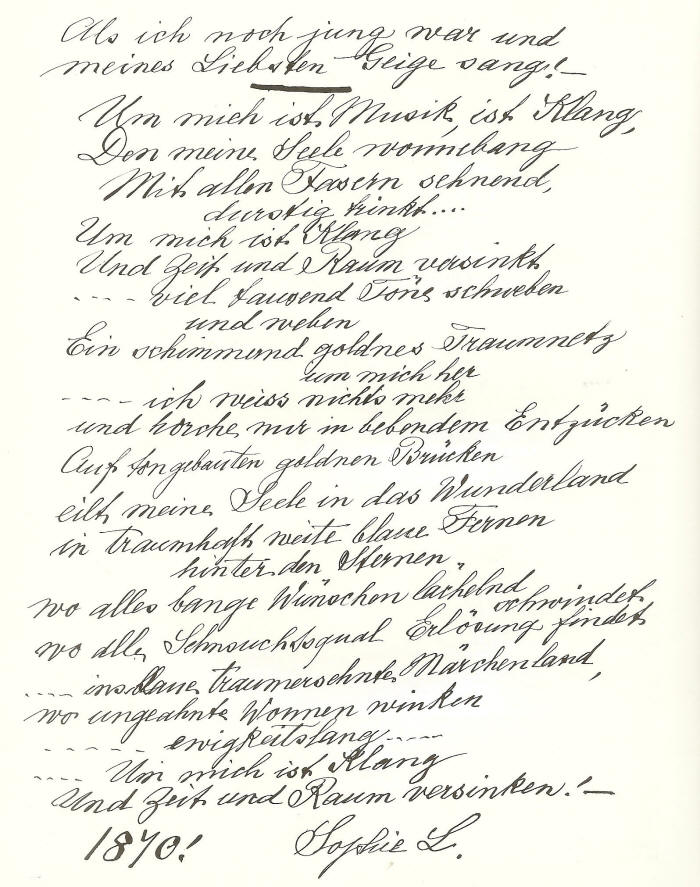 Als ich noch jung war und
meines Liebsten Geige sang! –
Um mich ist Musik, ist Klang,
Den meine Seele wonnebang
Mit allen Fasern sehnend,
durstig trinkt....
Um mich ist Klang
Und Zeit und Raum versinkt
---- viel tausend Töne schweben
und weben
Ein schimmernd goldnes Traumnetz
um mich her
---- ich weiss nichts mehr
und horche nur in bebendem Entzücken
Auf tongebauten goldnen Brücken
eilt meine Seele in das Wunderland
in traumhaft weite blaue Fernen
hinter den Sternen,
wo alles bange Wünschen lächelnd
schwindet
wo alle Sehnsuchtsqual Erlösung findet
.... ins blaue traumersehnte Märchenland,
wo ungeahnte Wonnen winken
----- ewigkeitslang -----
.... Um mich ist Klang
Und Zeit und Raum versinken! –
1870! Sophie L.